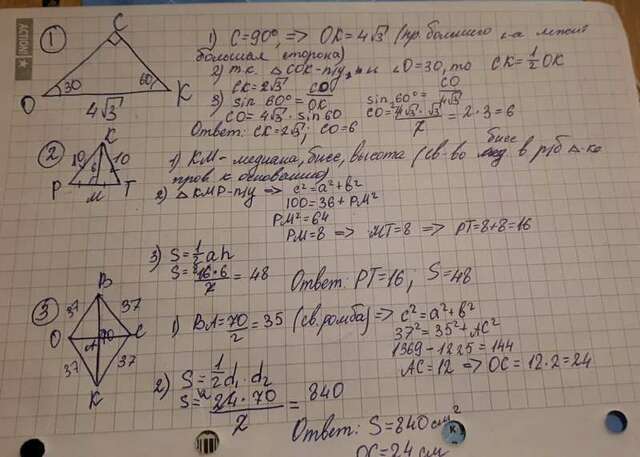 ACTION!
1
C
O
30
60
K
4√3
1) C=90°, => OK=4√3 (пр. большего
большая сторона)
2) т.к. △COK-п/у, и ∠O=30, то CK=1/2 OK
CK=2√3
3) sin 60°=CO/OK
sin 60°=CO/4√3
CO=4√3·sin 60
CO=4√3·√3/2=2·3=6
Ответ: CK=2√3; CO=6
2
K
10
6
10
P
M
T
1) KM-медиана, бисс, высота (св-во бисс в р/б △-ке
пров к основанию)
2) △KMP-п/у => c²=a²+b²
100=36+PM²
PM²=64
PM=8 => MT=8 => PT=8+8=16
3) S=1/2 ah
S=16·6/2=48
Ответ: PT=16; S=48
3
B
37
37
O
A
70
C
37
37
K
1) BA=70/2=35 (св. ромба) => c²=a²+b²
37²=35²+AC²
1369-1225=144
AC=12 => OC=12·2=24
2) S=1/2 d₁·d₂
S=24·70/2=840
Ответ: S=840см²
OC=24см